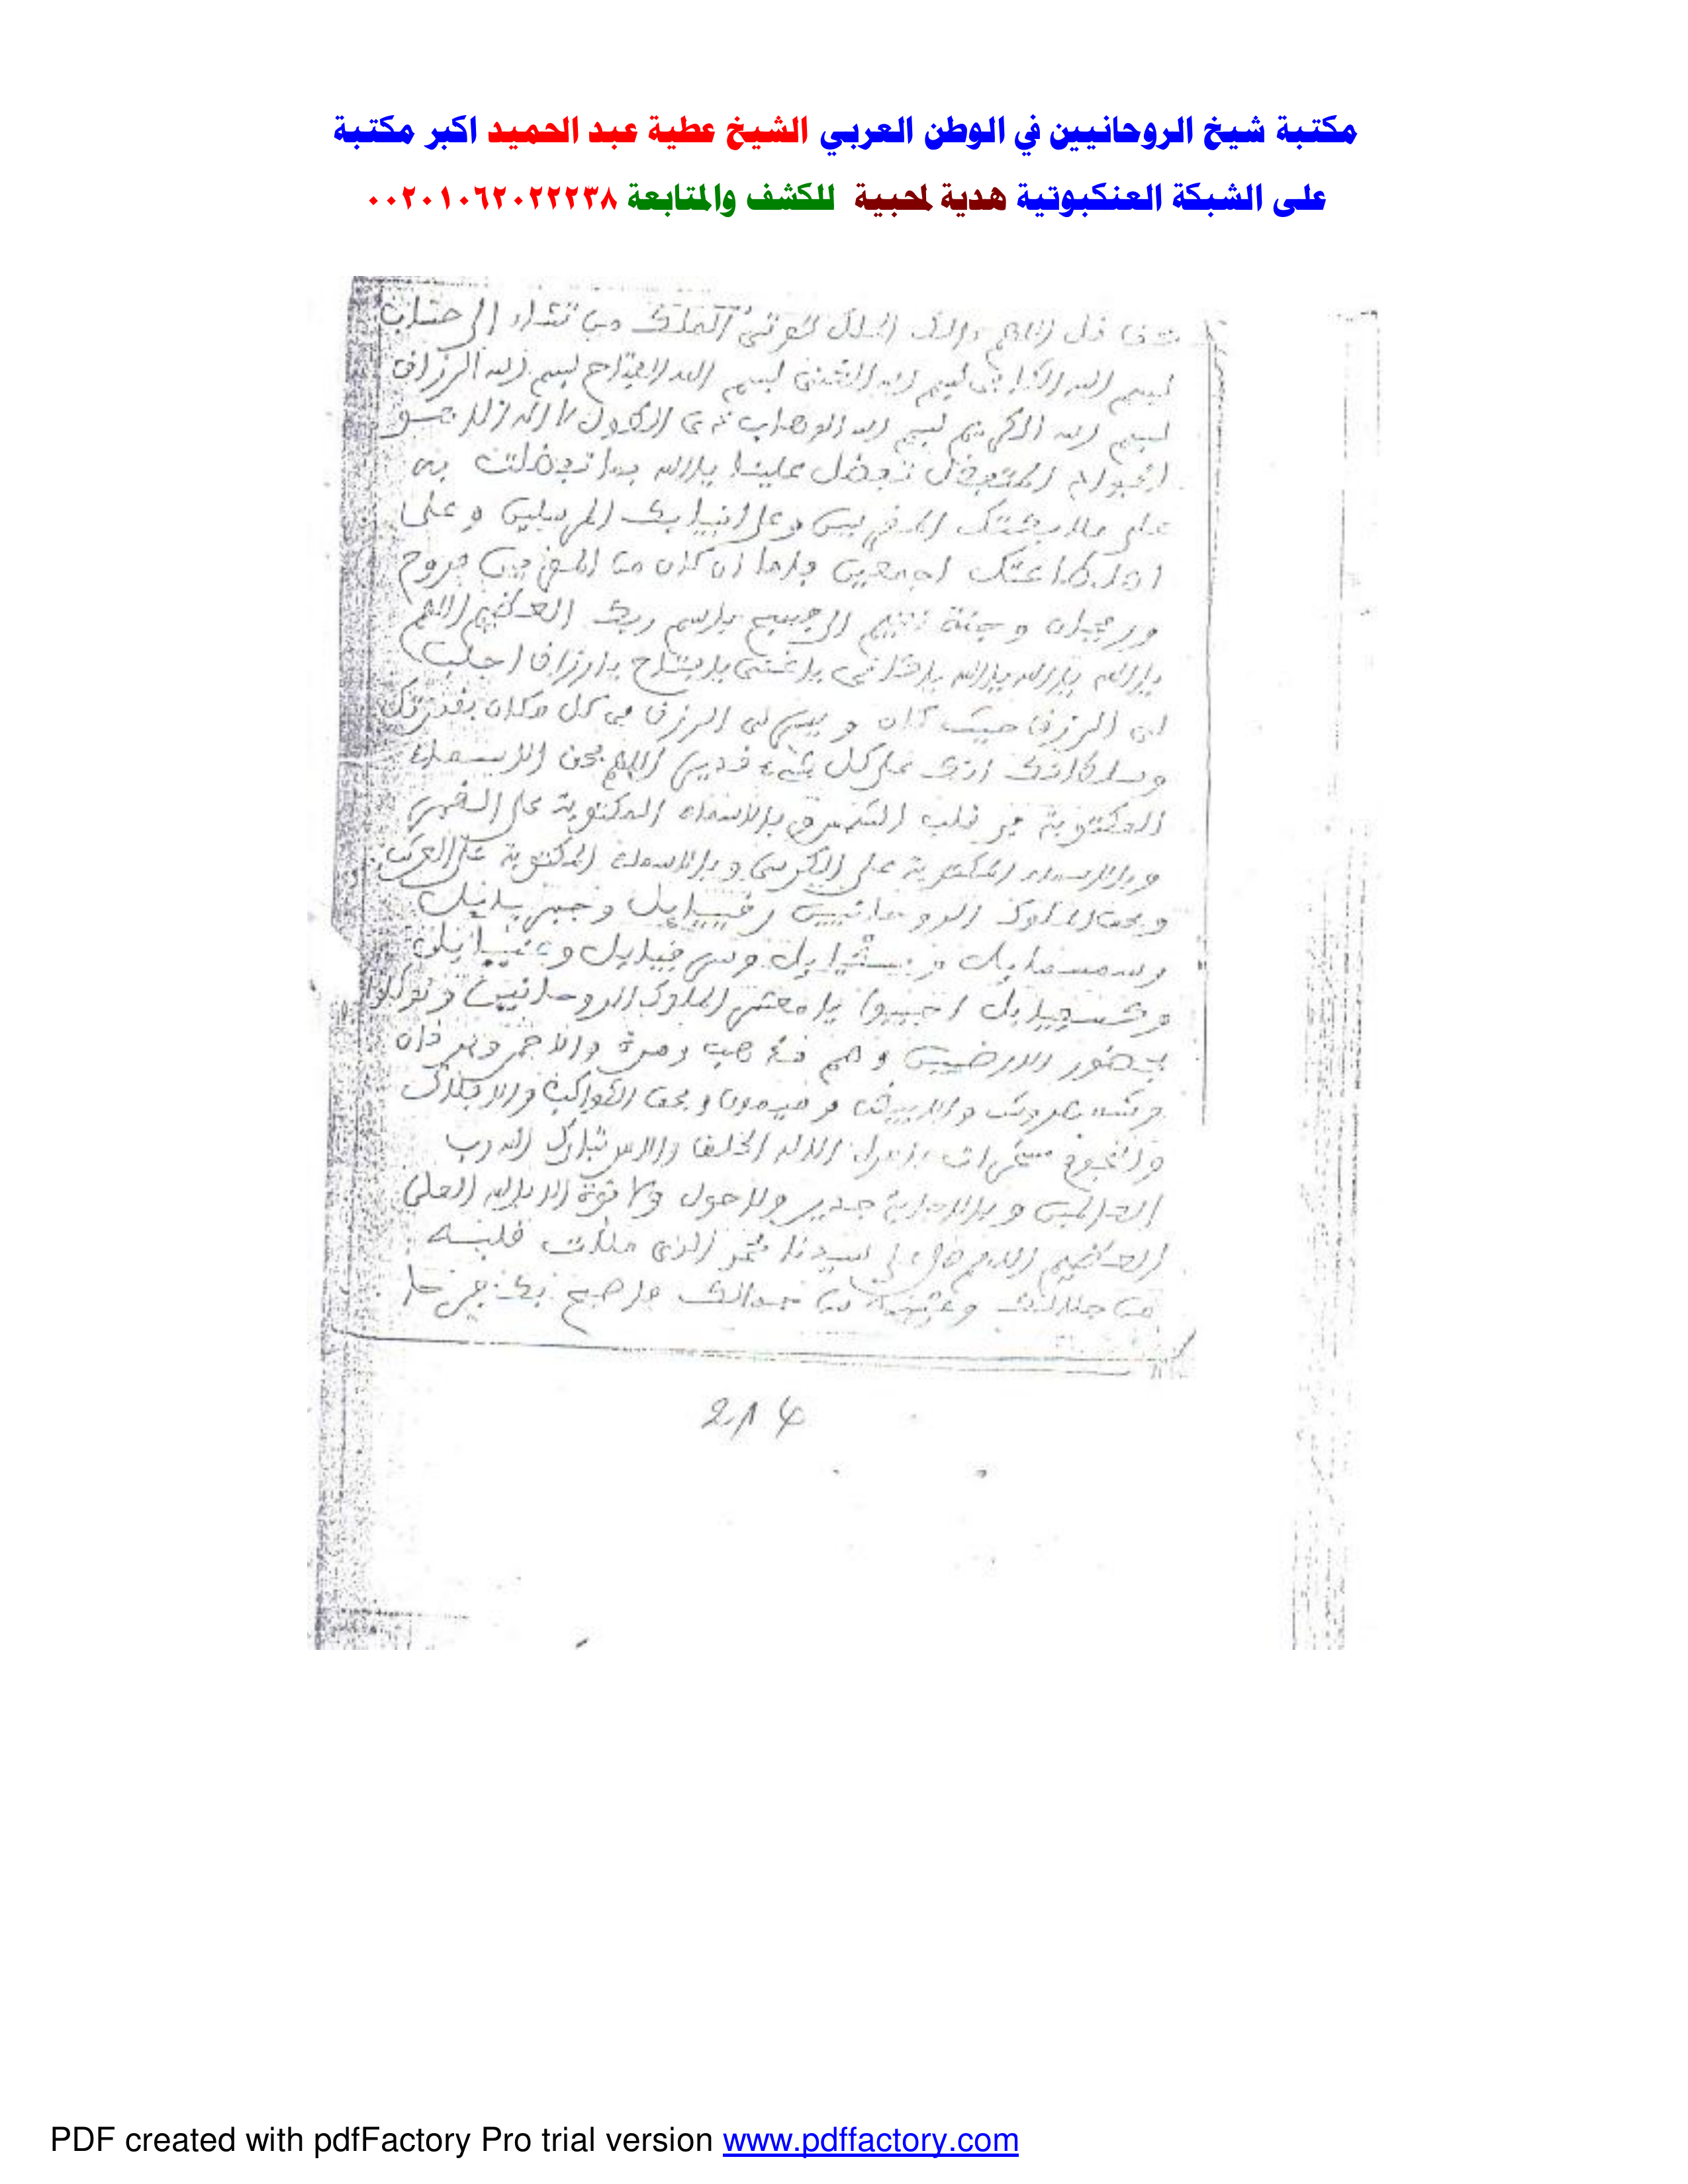 مكتبة شيخ الروحانيين في الوطن العربي الشيخ عطية عبد الحميد اكبر مكتبة
على الشبكة العنكبوتية هدية لمحبيية للكشف والمتابعة ٠٠٢٠١٠٦٢٠٢٢٢٣٨
قل اللهم مالك الملك تؤتي الملك من تشاء الى حساب
بسم الله الكافي بسم الله الغني بسم الله الفتاح بسم الله الرزاق
بسم الله الكريم بسم الله الوهاب ذي الطول لا اله الا هو
تفضل علينا يا الله بما تفضلت به
على ملايكتك المقربين وعلى انبيايك المرسلين وعلى
اهل طاعتك اجمعين فاما ان كان من المقربين فروح
وريحان وجنة نعيم فسبح باسم ربك العظيم اللهم
يا الله يا الله يا الله يا كافي يا غني يا فتاح يا رزاق اجلب
لي الرزق حيث كان ويسر لي الرزق في كل مكان بقدرتك
وسلطانك انك على كل شيء قدير اللهم بحق الاسماء
المكتوبة في قلب الشمس وبالاسماء المكتوبة على القمر
وبالاسماء المكتوبة على الكرسي وبالاسماء المكتوبة على العرش
وبحق الملوك الروحانيين رقيايل وجبريايل
وسمسمايل وصرفيايل وعنيايل
وكسفيايل اجيبوا يا معشر الملوك الروحانيين وتوكلوا
بحضور الارضيين وهم مذهب ومرة والاحمر وبرقان
وشمهروش والابيض وميمون وبحق الكواكب والافلاك
والنجوم مسخرات بامره الا له الخلق والامر تبارك الله رب
العالمين وبالاجابة جدير ولا حول ولا قوة الا بالله العلي
العظيم اللهم صل على سيدنا محمد الذي ملات قلبه
من جلالك وعينه من جمالك فاصبح بك فرحا
214
PDF created with pdfFactory Pro trial version www.pdffactory.com